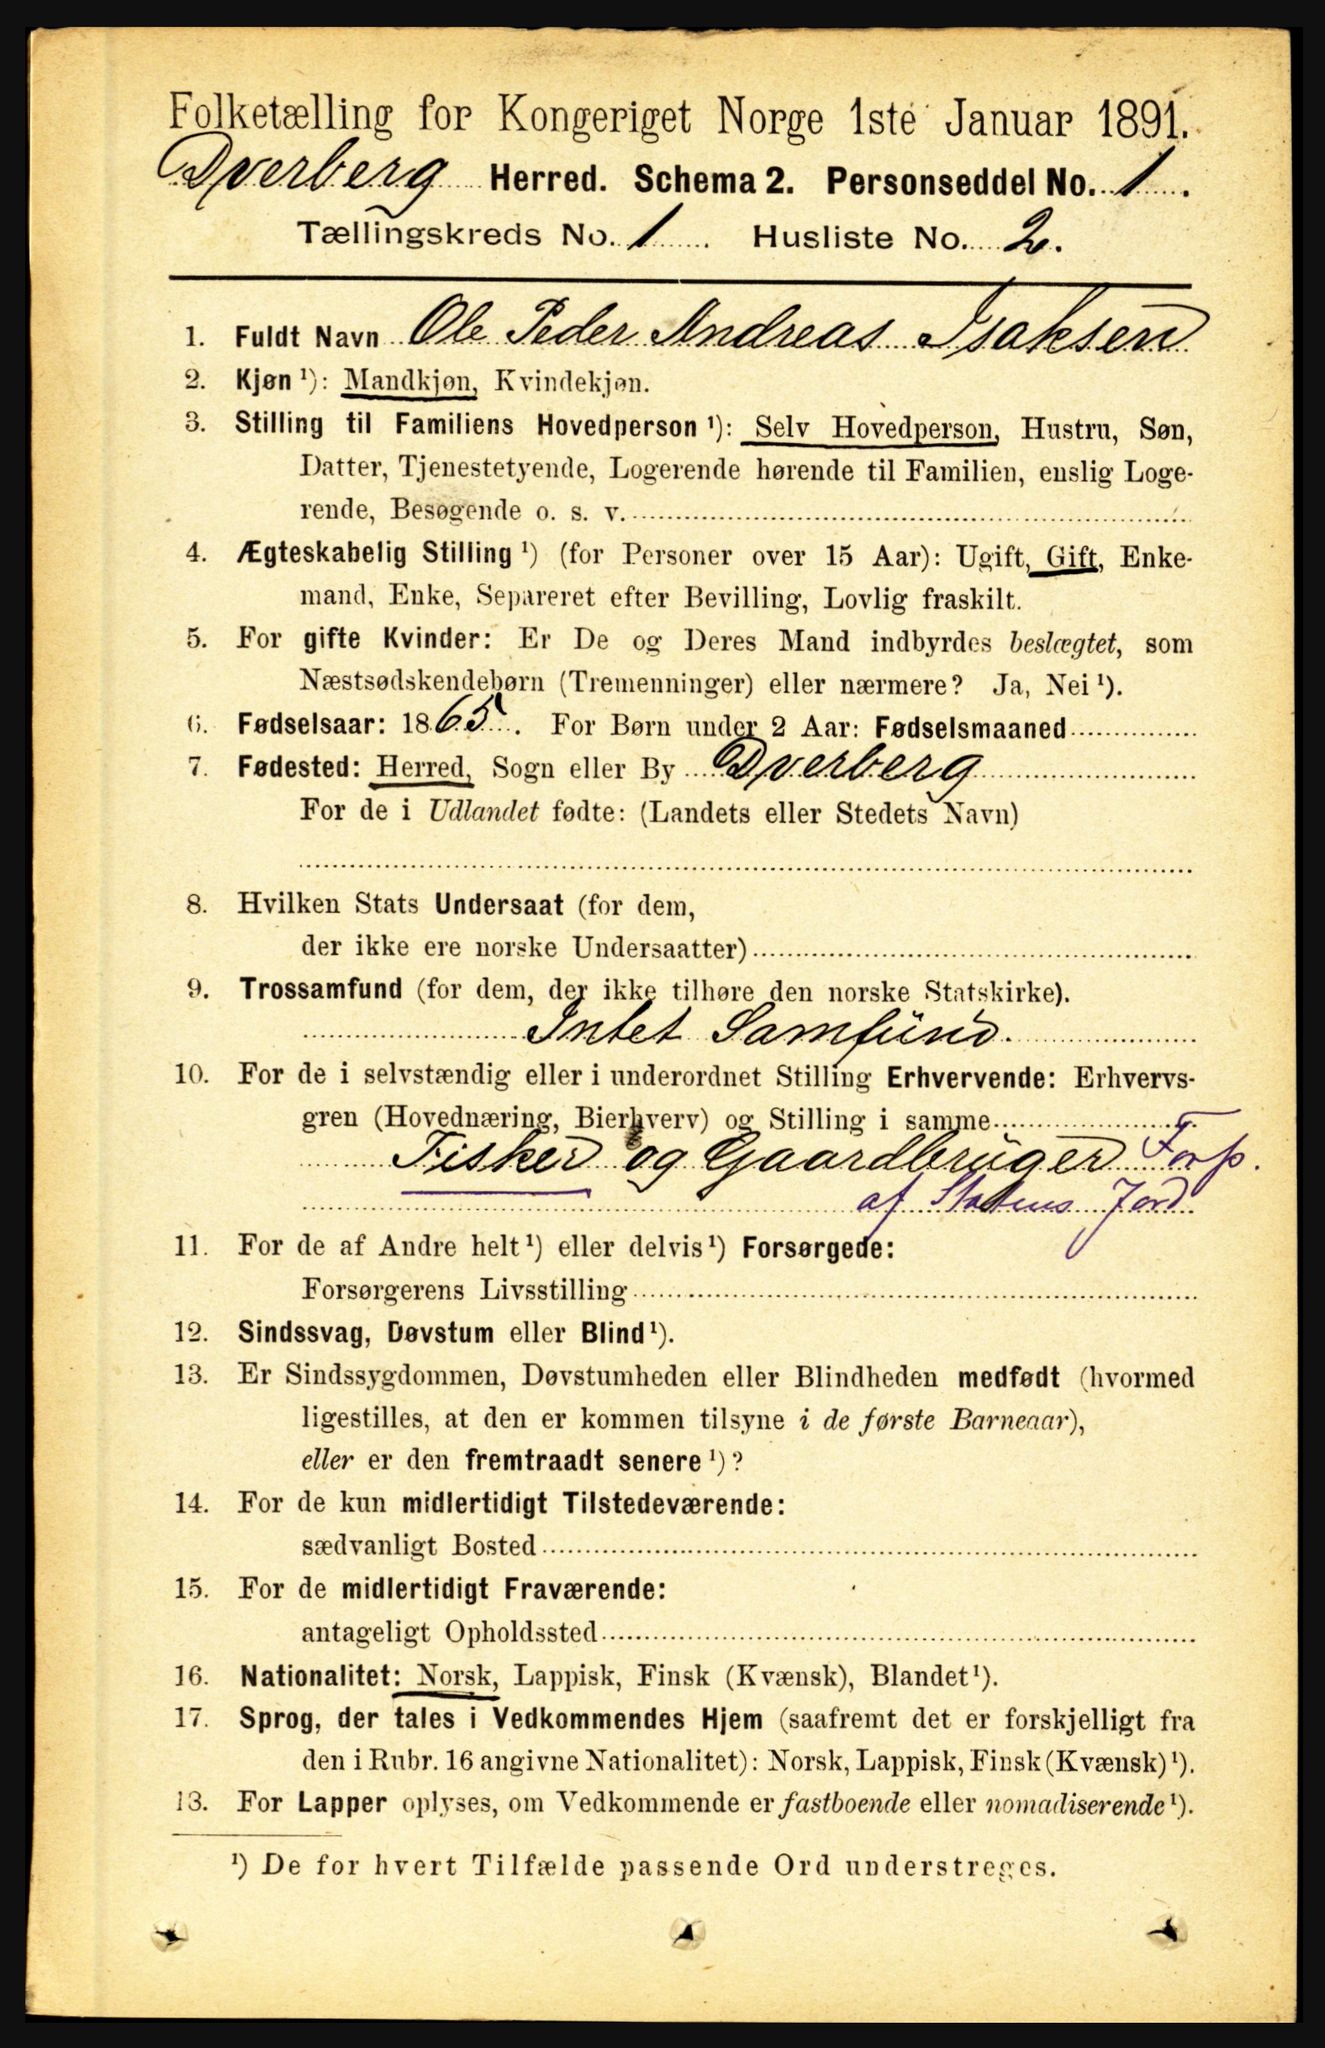 Folketælling for Kongeriget Norge 1ste Januar 1891.
Dverberg Herred. Schema 2. Personseddel No. 1.
Tællingskreds No. 1 Husliste No. 2.
1. Fuldt Navn Ole Peder Andreas Isaksen
2. Kjøn ¹): Mandkjøn, Kvindekjøn.
3. Stilling til Familiens Hovedperson ¹): Selv Hovedperson, Hustru, Søn,
Datter, Tjenestetyende, Logerende hørende til Familien, enslig Loge-
rende, Besøgende o. s. v.
4. Ægteskabelig Stilling ¹) (for Personer over 15 Aar): Ugift, Gift, Enke-
mand, Enke, Separeret efter Bevilling, Lovlig fraskilt.
5. For gifte Kvinder: Er De og Deres Mand indbyrdes beslægtet, som
Næstsødskendebørn (Tremenninger) eller nærmere? Ja, Nei ¹).
6. Fødselsaar: 1865. For Børn under 2 Aar: Fødselsmaaned
7. Fødested: Herred, Sogn eller By Dverberg
For de i Udlandet fødte: (Landets eller Stedets Navn)
8. Hvilken Stats Undersaat (for dem,
der ikke ere norske Undersaatter)
9. Trossamfund (for dem, der ikke tilhøre den norske Statskirke).
Intet Samfund.
10. For de i selvstændig eller i underordnet Stilling Erhvervende: Erhvervs-
gren (Hovednæring, Bierhverv) og Stilling i samme
Fisker og Gaardbruger Forp.
af Statens Jord
11. For de af Andre helt ¹) eller delvis ¹) Forsørgede:
Forsørgerens Livsstilling
12. Sindssvag, Døvstum eller Blind ¹).
13. Er Sindssygdommen, Døvstumheden eller Blindheden medfødt (hvormed
ligestilles, at den er kommen tilsyne i de første Barneaar),
eller er den fremtraadt senere ¹)?
14. For de kun midlertidigt Tilstedeværende:
sædvanligt Bosted
15. For de midlertidigt Fraværende:
antageligt Opholdssted
16. Nationalitet: Norsk, Lappisk, Finsk (Kvænsk), Blandet ¹).
17. Sprog, der tales i Vedkommendes Hjem (saafremt det er forskjelligt fra
den i Rubr. 16 angivne Nationalitet): Norsk, Lappisk, Finsk (Kvænsk) ¹).
13. For Lapper oplyses, om Vedkommende er fastboende eller nomadiserende ¹).
¹) De for hvert Tilfælde passende Ord understreges.